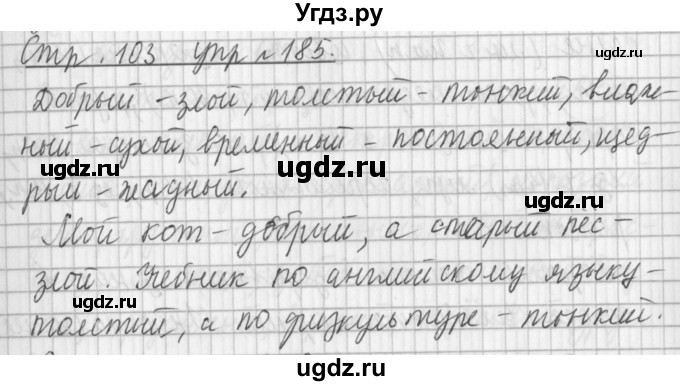 Угдз.ру
Стр. 103 упр № 185.
Добрый - злой, толстый - тонкий, влаж-
ный - сухой, временный - постоянный, щед-
рый - жадный.
Мой кот - добрый, а старый пес -
злой. Учебник по английскому языку -
толстый, а по физкультуре - тонкий.
ugdz.ru
ugdz.ru
ugdz.ru
ugdz.ru
ugdz.ru
ugdz.ru
ugdz.ru
ugdz.ru